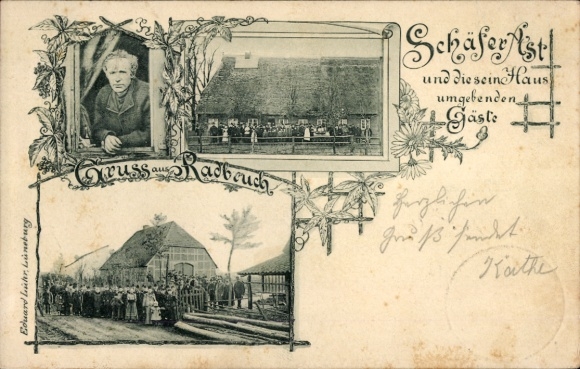 Schäfer Ast
und die sein Haus
umgebenden
Gäste
Gruss aus Radbruch
Herzlichen
Gruß sendet
Käthe
Eduard Lühr, Lüneburg.